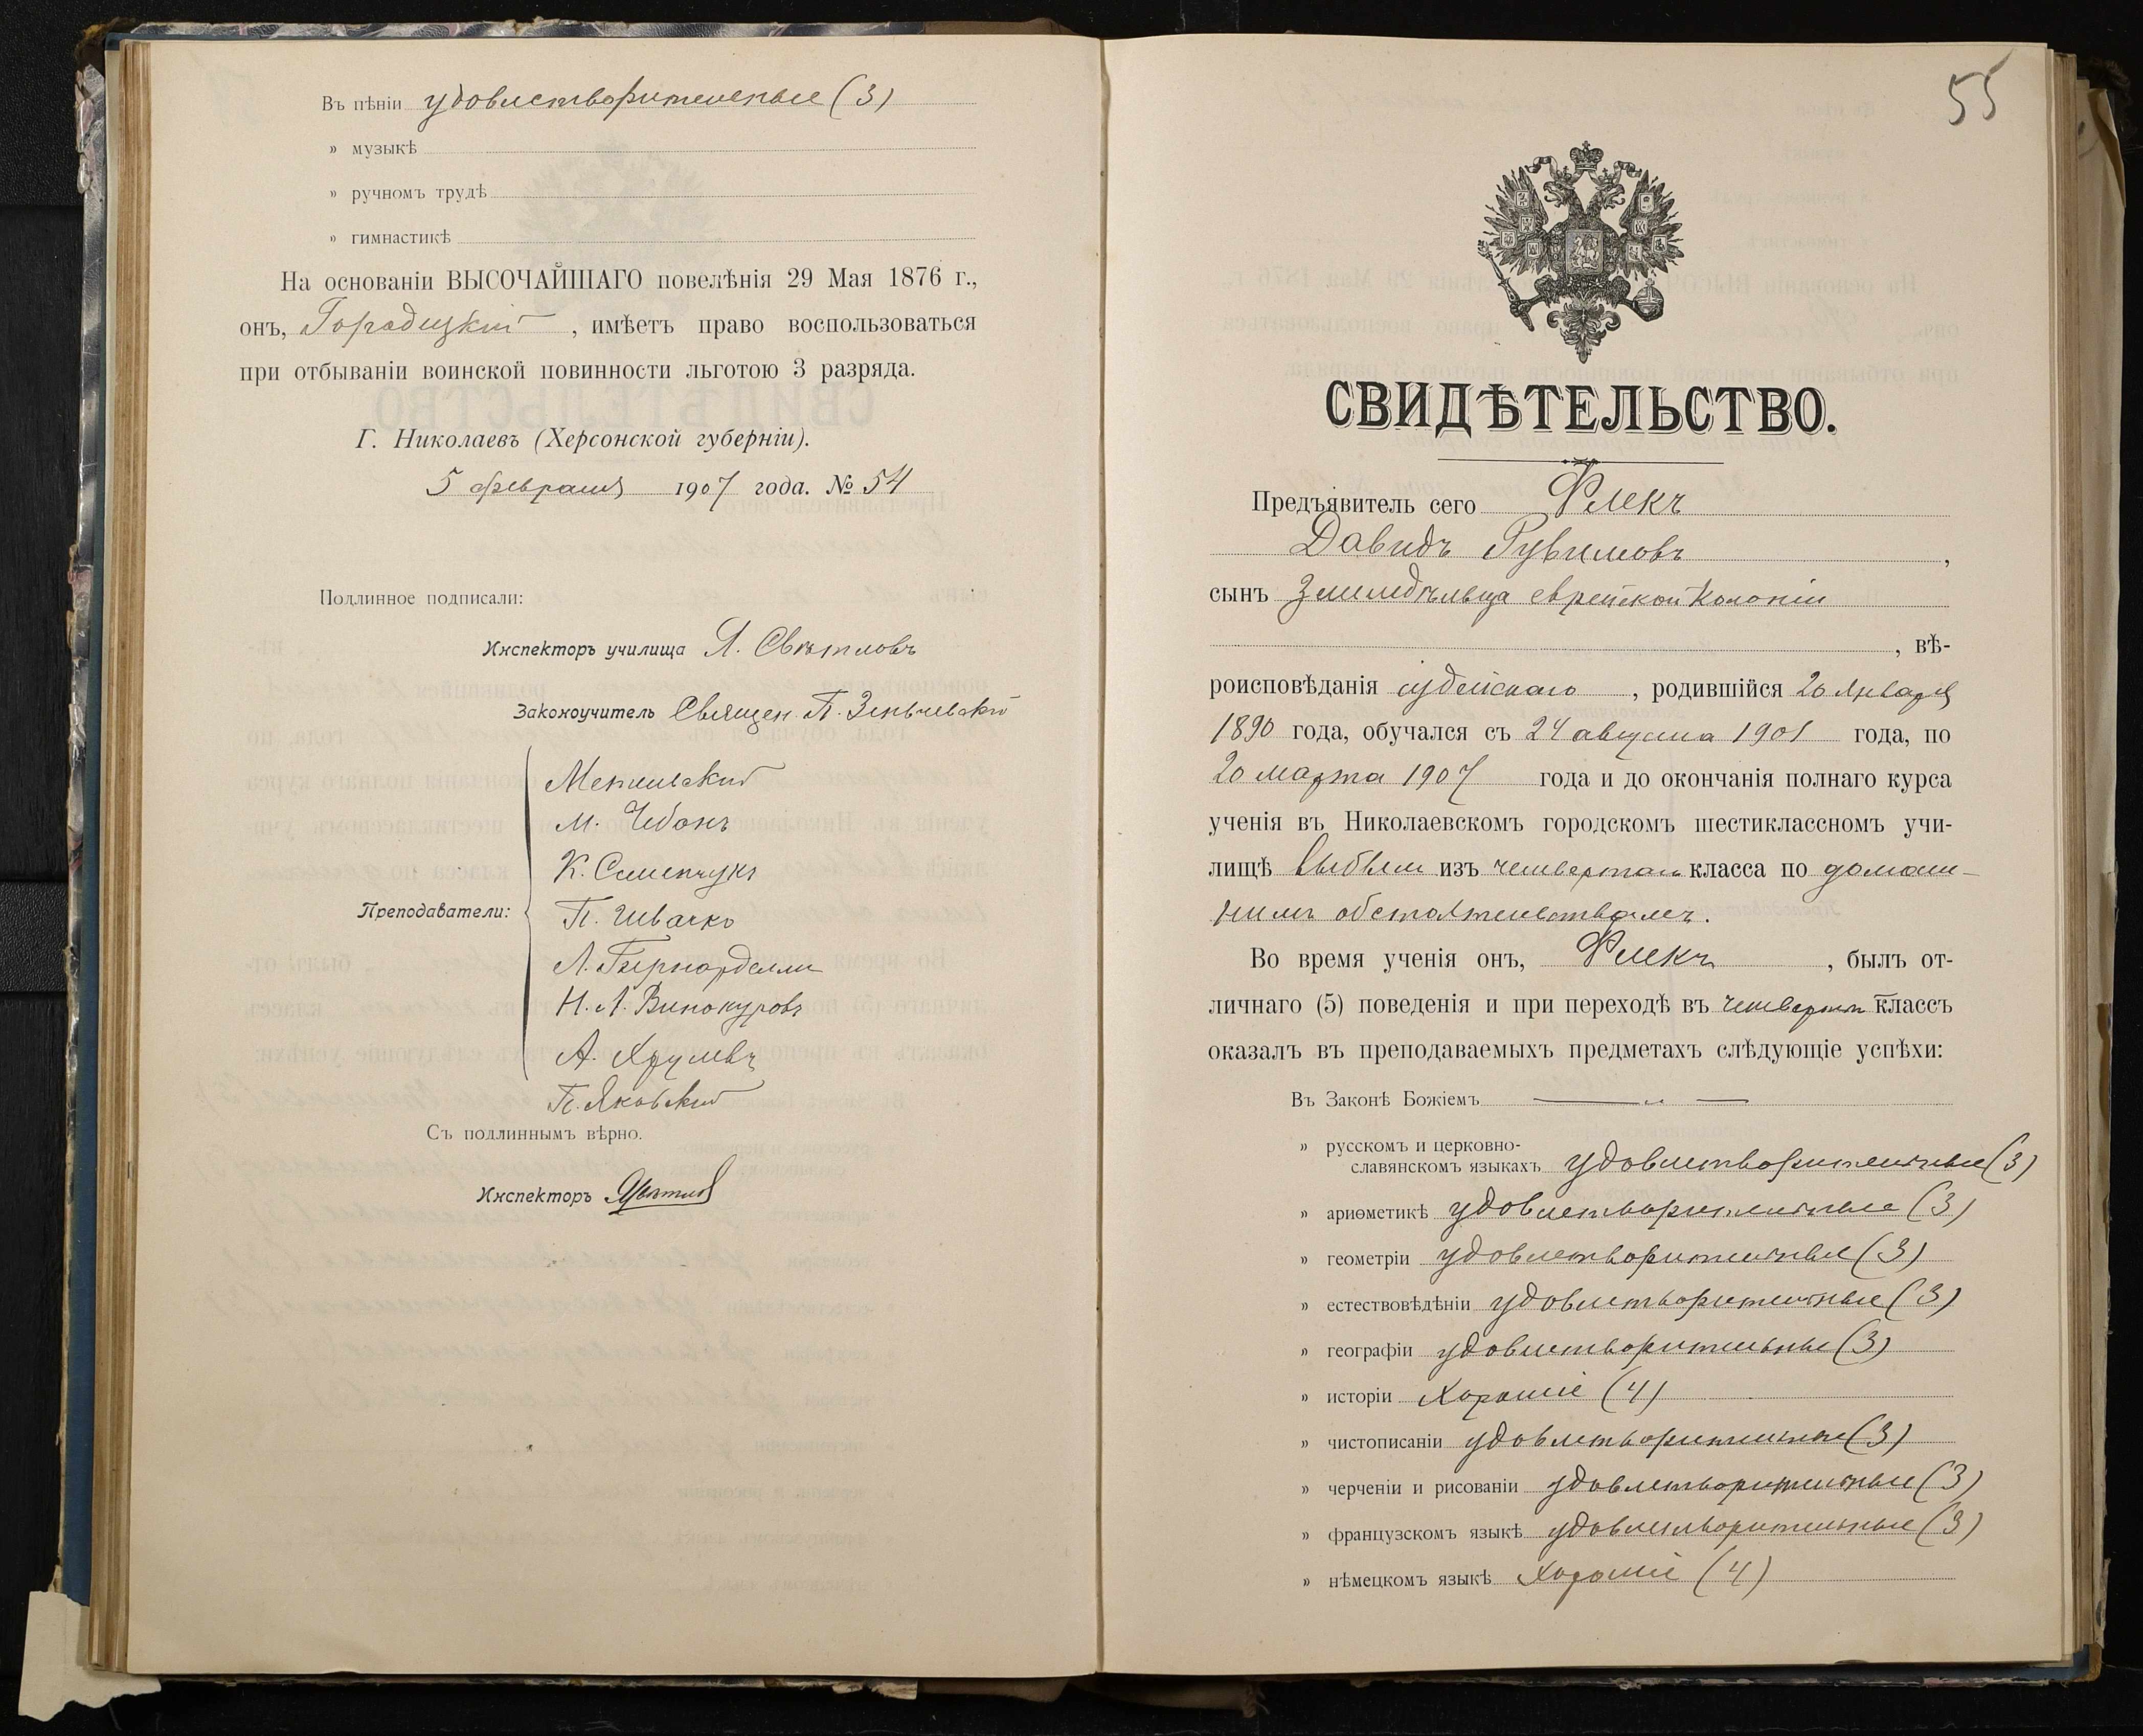 Въ пѣніи удовлетворительные (3)
» музыкѣ
» ручномъ трудѣ
» гимнастикѣ
На основаніи ВЫСОЧАЙШАГО повелѣнія 29 Мая 1876 г.,
онъ, Городицкій, имѣетъ право воспользоваться
при отбываніи воинской повинности льготою 3 разряда.
Г. Николаевъ (Херсонской губерніи).
5 февраля 1907 года. № 54
Подлинное подписали:
Инспекторъ училища Я. Свѣтловъ
Законоучитель Священ. П.
Преподаватели:
М. Чебанъ
К. Семенчукъ
П. Швачко
Л. Бернарделли
Н. Л. Винокуровъ
А. Хрулевъ
П. Яковскій
Съ подлиннымъ вѣрно.
Инспекторъ ЯСвѣтловъ
55
СВИДѢТЕЛЬСТВО.
Предъявитель сего Флекъ
Давидъ Рувимовъ,
сынъ Земледѣльца еврейской колоніи
, вѣ-
роисповѣданія іудейскаго, родившійся 20 Января
1890 года, обучался съ 24 августа 1901 года, по
20 марта 1907 года и до окончанія полнаго курса
ученія въ Николаевскомъ городскомъ шестиклассномъ учи-
лищѣ выбылъ изъ четвертаго класса по домаш-
нимъ обстоятельствамъ.
Во время ученія онъ, Флекъ, былъ от-
личнаго (5) поведенія и при переходѣ въ четверт. классъ
оказалъ въ преподаваемыхъ предметахъ слѣдующіе успѣхи:
Въ Законѣ Божіемъ — „ —
» русскомъ и церковно-
славянскомъ языкахъ удовлетворительные (3)
» ариѳметикѣ удовлетворительные (3)
» геометріи удовлетворительные (3)
» естествовѣдѣніи удовлетворительные (3)
» географіи удовлетворительные (3)
» исторіи Хорошіе (4)
» чистописаніи удовлетворительные (3)
» черченіи и рисованіи удовлетворительные (3)
» французскомъ языкѣ удовлетворительные (3)
» нѣмецкомъ языкѣ Хорошіе (4)